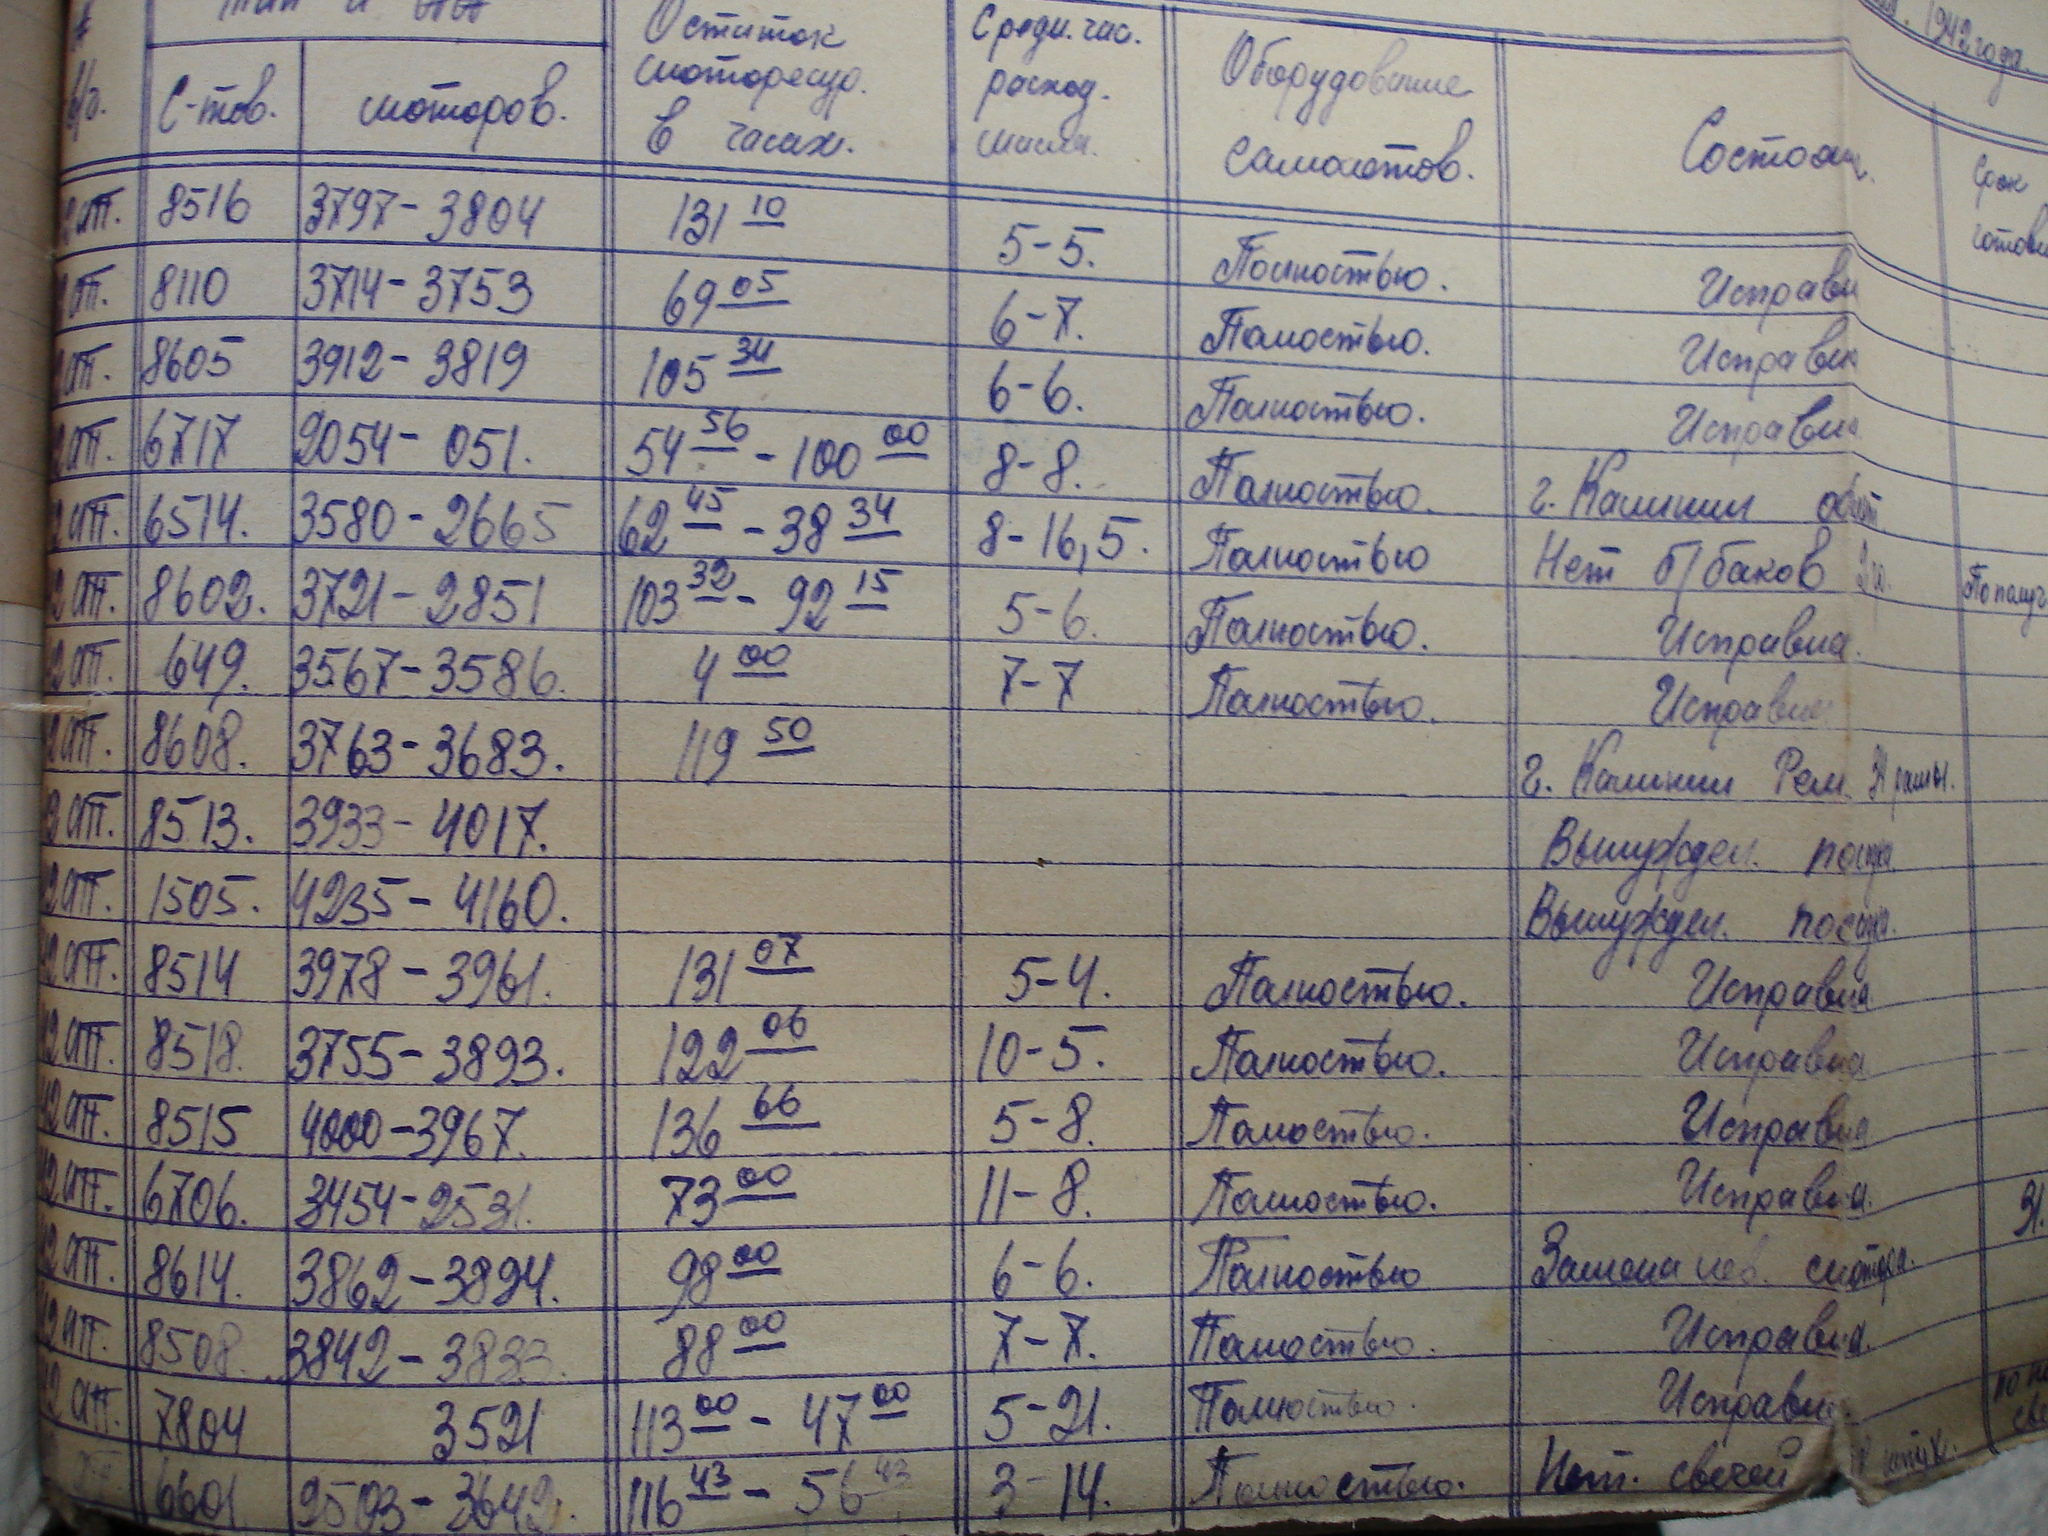 1942 года.
Остаток моторесур. в часах.
Средн. час. расход. масла.
С-тов. моторов. Оборудование самолетов. Состоян. Срок готовн
ат. 8516 3797-3804 131 10 5-5. Полностью. Исправн
ат. 8110 3714-3753 69 05 6-7. Полностью. Исправна
ат. 8605 3912-3819 105 34 6-6. Полностью. Исправна
ат. 6717 2054-051. 54 56 - 100 00 8-8. Полностью. г. Калинин
2 ат. 6514. 3580-2665 62 45 - 38 34 8-16,5. Полностью Нет б/баков По получ
2 ат. 8602. 3721-2851 103 32 - 92 15 5-6. Полностью. Исправна.
2 ат. 649. 3567-3586. 4 00 7-7 Полностью. Исправна
2 ат. 8608. 3763-3683. 119 50 г. Калинин Рем. рамы.
3 ат. 8513. 3933-4017. Вынужден. посадка.
2 ат. 1505. 4235-4160. Вынужден. посадка.
2 ат. 8514 3978-3961. 131 07 5-4. Полностью. Исправна
2 ат. 8518. 3755-3893. 122 06 10-5. Полностью. Исправна
2 ат. 8515 4000-3967. 136 66 5-8. Полностью. Исправна
2 ат. 6706. 3454-2531. 73 00 11-8. Полностью. Исправна.
2 ат. 8614. 3862-3894. 98 00 6-6. Полностью Замена лев. мотора. 31.
2 ат. 8508. 3842-3833. 88 00 7-7. Полностью. Исправна.
2 ат. 7804 3521 113 00 - 47 00 5-21. Полностью. Исправна.
6601 2503-3642. 116 43 - 56 43 3-14. Полностью. Нет. свечей штук.